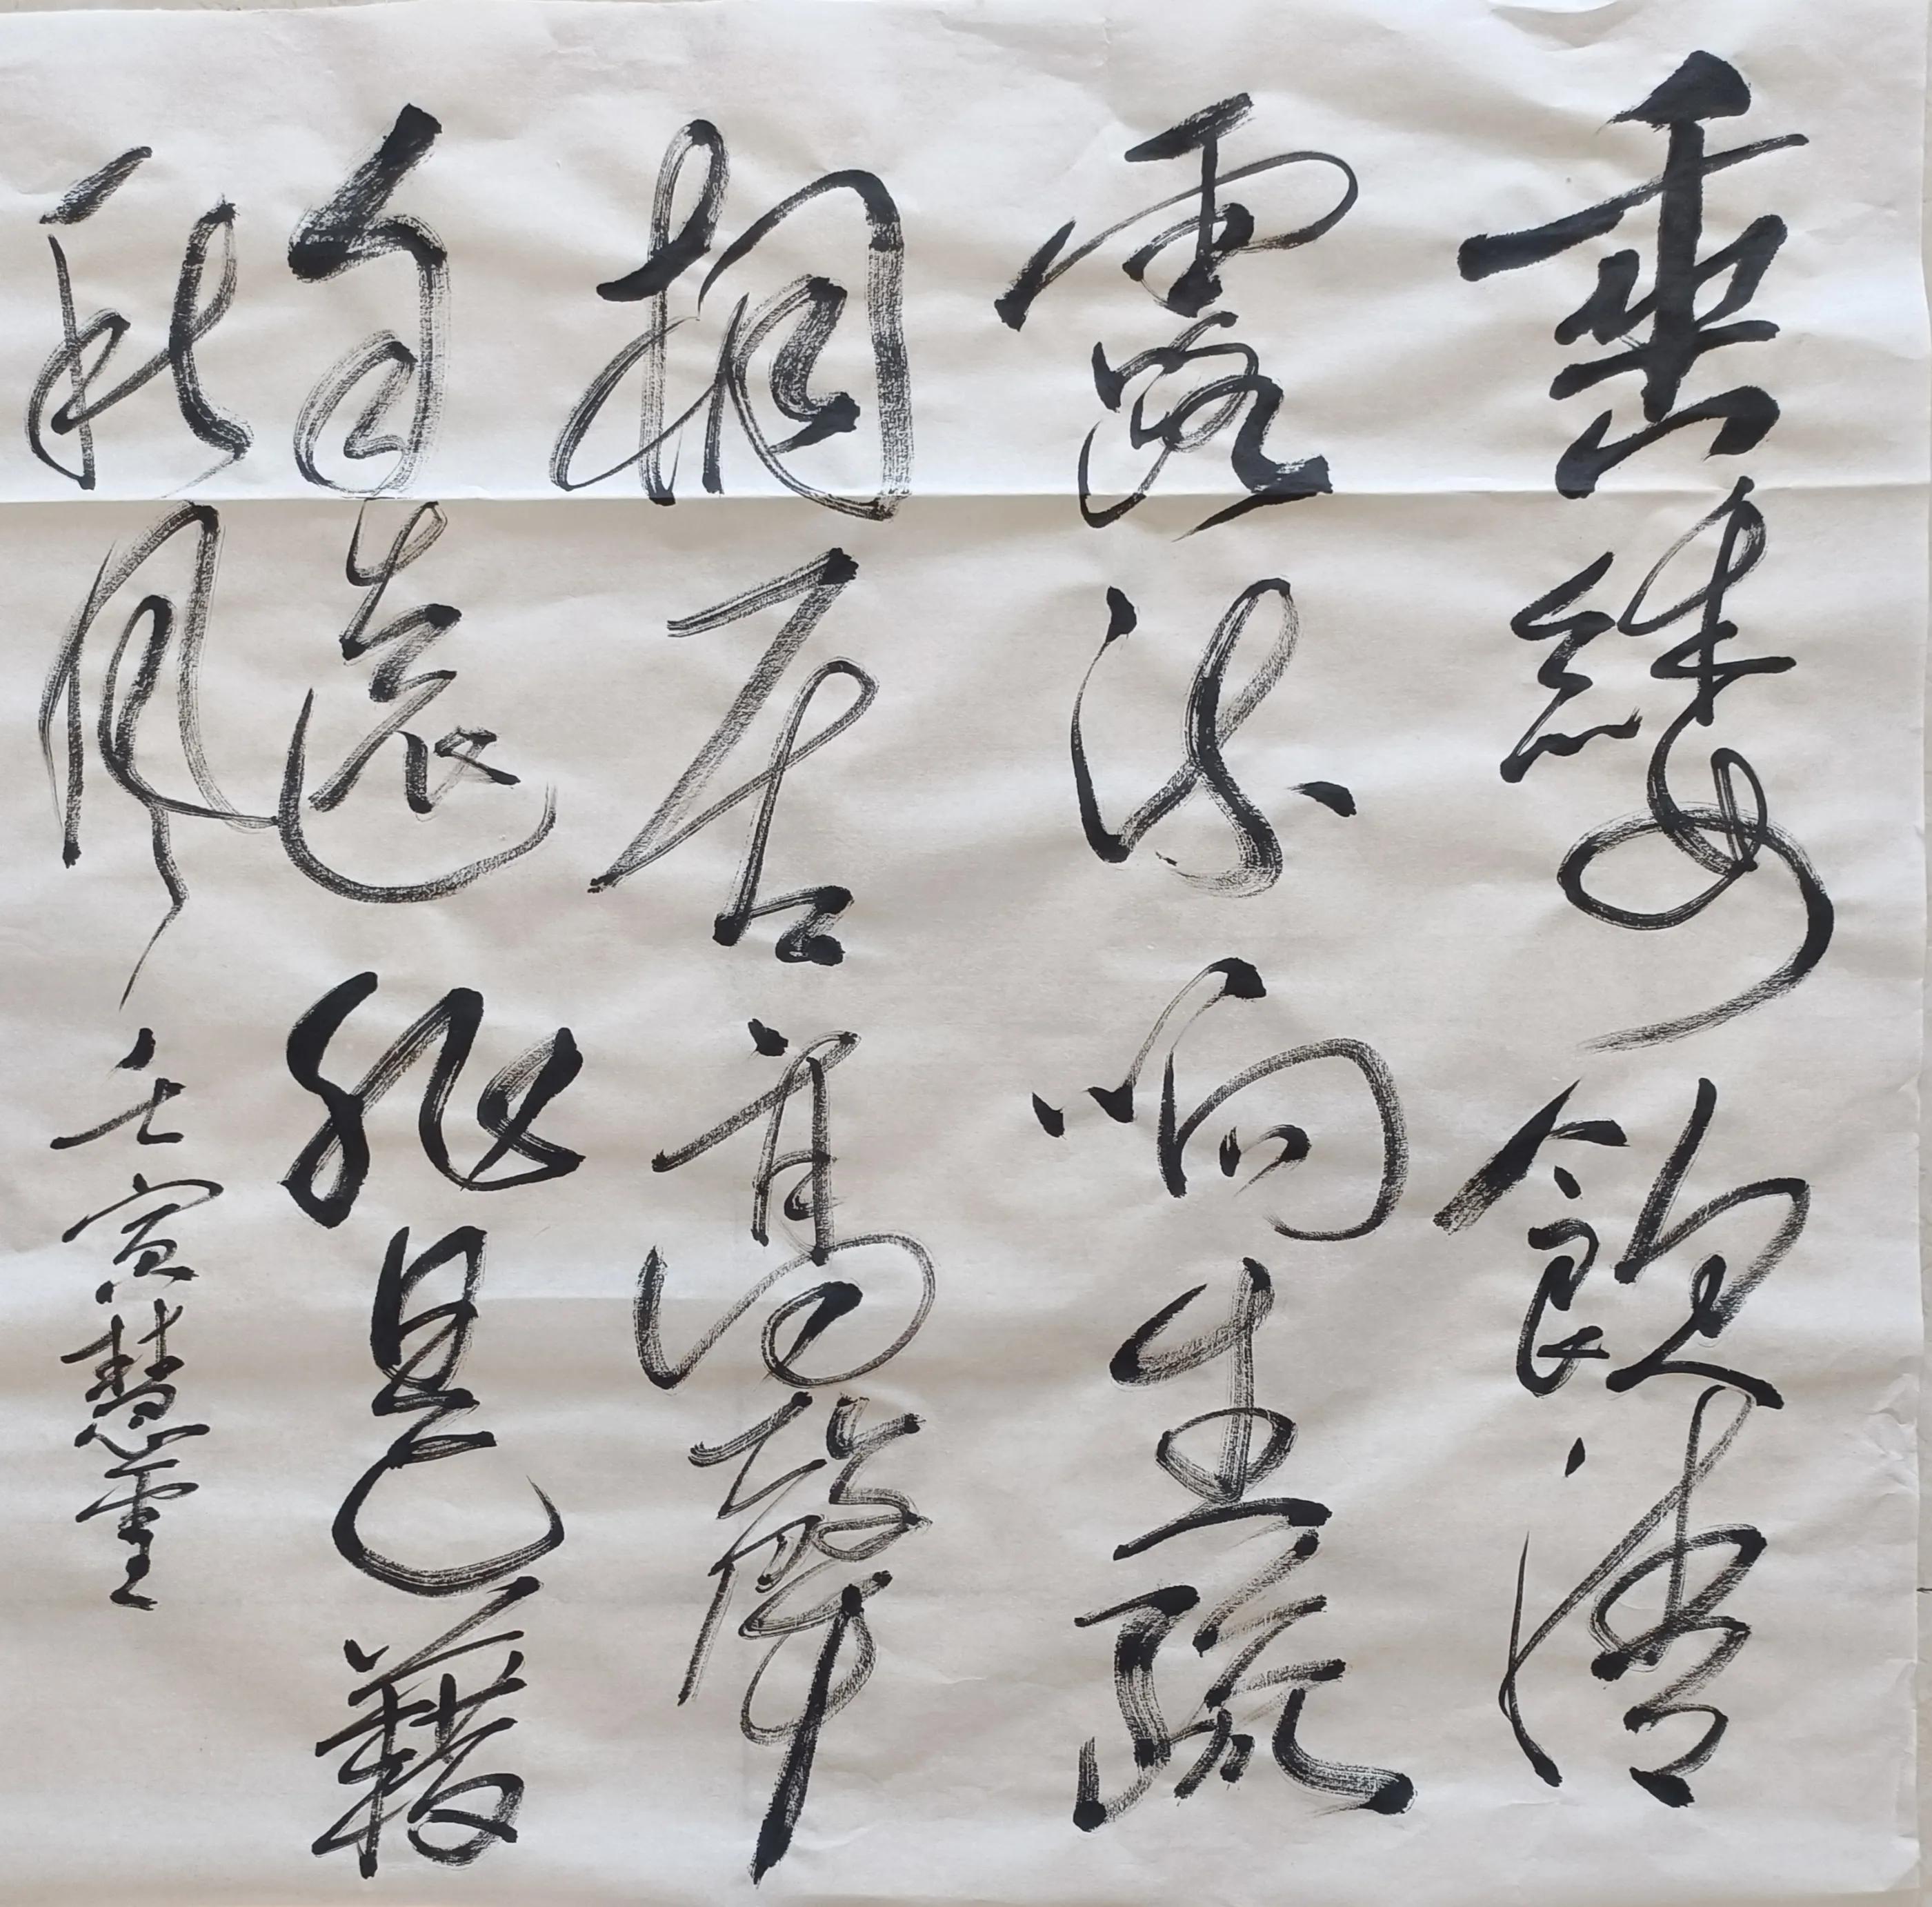 垂緌飲清
露流响出疏
桐居高聲
自遠非是藉
秋風 壬寅慧